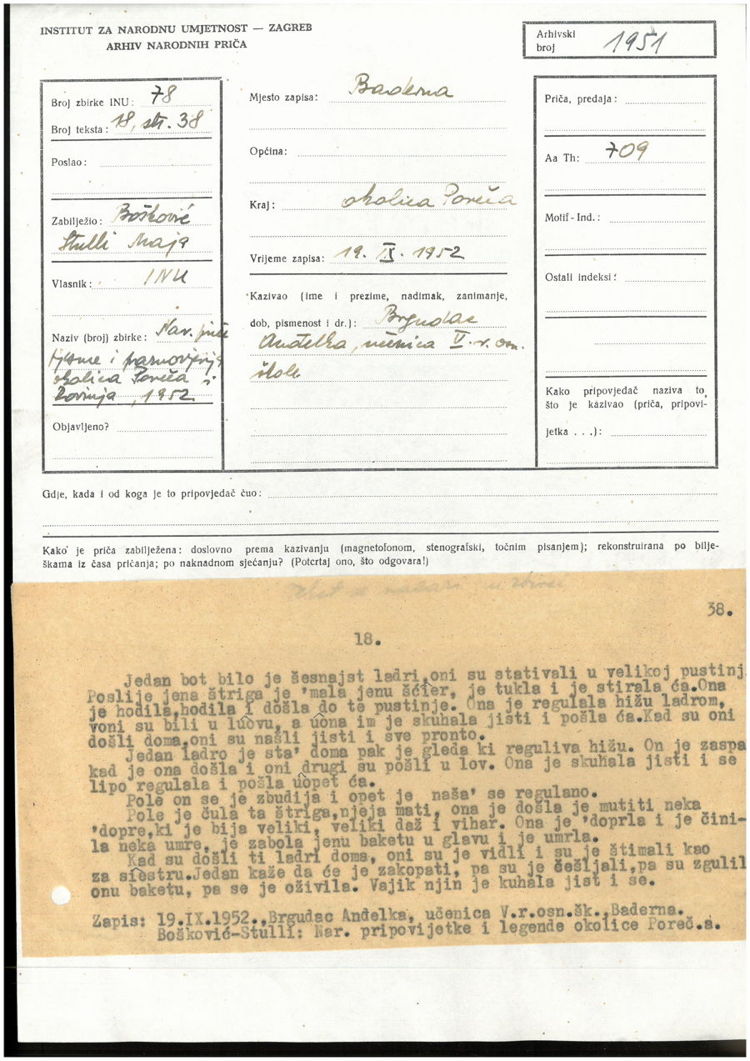 INSTITUT ZA NARODNU UMJETNOST — ZAGREB
ARHIV NARODNIH PRIČA
Arhivski broj 1951
Broj zbirke INU: 78
Broj teksta: 18, str. 38
Poslao:
Zabilježio: Bošković
Stulli Maja
Vlasnik: INU
Naziv (broj) zbirke: Nar. priče
i praznovjerja
okolica Poreča i
Rovinja, 1952
Objavljeno?
Mjesto zapisa: Baderna
Općina:
Kraj: okolica Poreča
Vrijeme zapisa: 19. IX. 1952
Kazivao (ime i prezime, nadimak, zanimanje,
dob, pismenost i dr.): Brgudac
Anđelka, učenica V. r. osn.
škole
Priča, predaja:
Aa Th: 709
Motif-Ind.:
Ostali indeksi:
Kako pripovjedač naziva to,
što je kazivao (priča, pripovi-
jetka . . .):
Gdje, kada i od koga je to pripovjedač čuo:
Kako je priča zabilježena: doslovno prema kazivanju (magnetofonom, stenografski, točnim pisanjem); rekonstruirana po bilje-
škama iz časa pričanja; po naknadnom sjećanju? (Potcrtaj ono, što odgovara!)
38.
18.
Jedan bot bilo je šesnajst ladri,oni su stativali u velikoj pustinj
Poslije jena štriga je 'mala jenu šćier, je tukla i je stirala ća.Ona
je hodila,hodila i došla do te pustinje. Ona je regulala hižu ladrom,
voni su bili u luovu, a uona im je skuhala jisti i pošla ća.Kad su oni
došli doma,oni su našli jisti i sve pronto.
Jedan ladro je sta' doma pak je gleda ki reguliva hižu. On je zaspa
kad je ona došla i oni drugi su pošli u lov. Ona je skuhala jisti i se
lipo regulala i pošla uopet ća.
Pole on se je zbudija i opet je naša' se regulano.
Pole je čula ta štriga,njeja mati, ona je došla je mutiti neka
'dopre,ki je bija veliki, veliki daž i vihar. Ona je 'doprla i je čini-
la neka umre, je zabola jenu baketu u glavu i je umrla.
Kad su došli ti ladri doma, oni su je vidli i su je štimali kao
za siestru.Jedan kaže da će je zakopati, pa su je češljali,pa su zgulil
onu baketu, pa se je oživila. Vajik njin je kuhala jist i se.
Zapis: 19.IX.1952.,Brgudac Anđelka, učenica V.r.osn.šk.,Baderna.
Bošković-Stulli: Nar. pripovijetke i legende okolice Poreč.a.